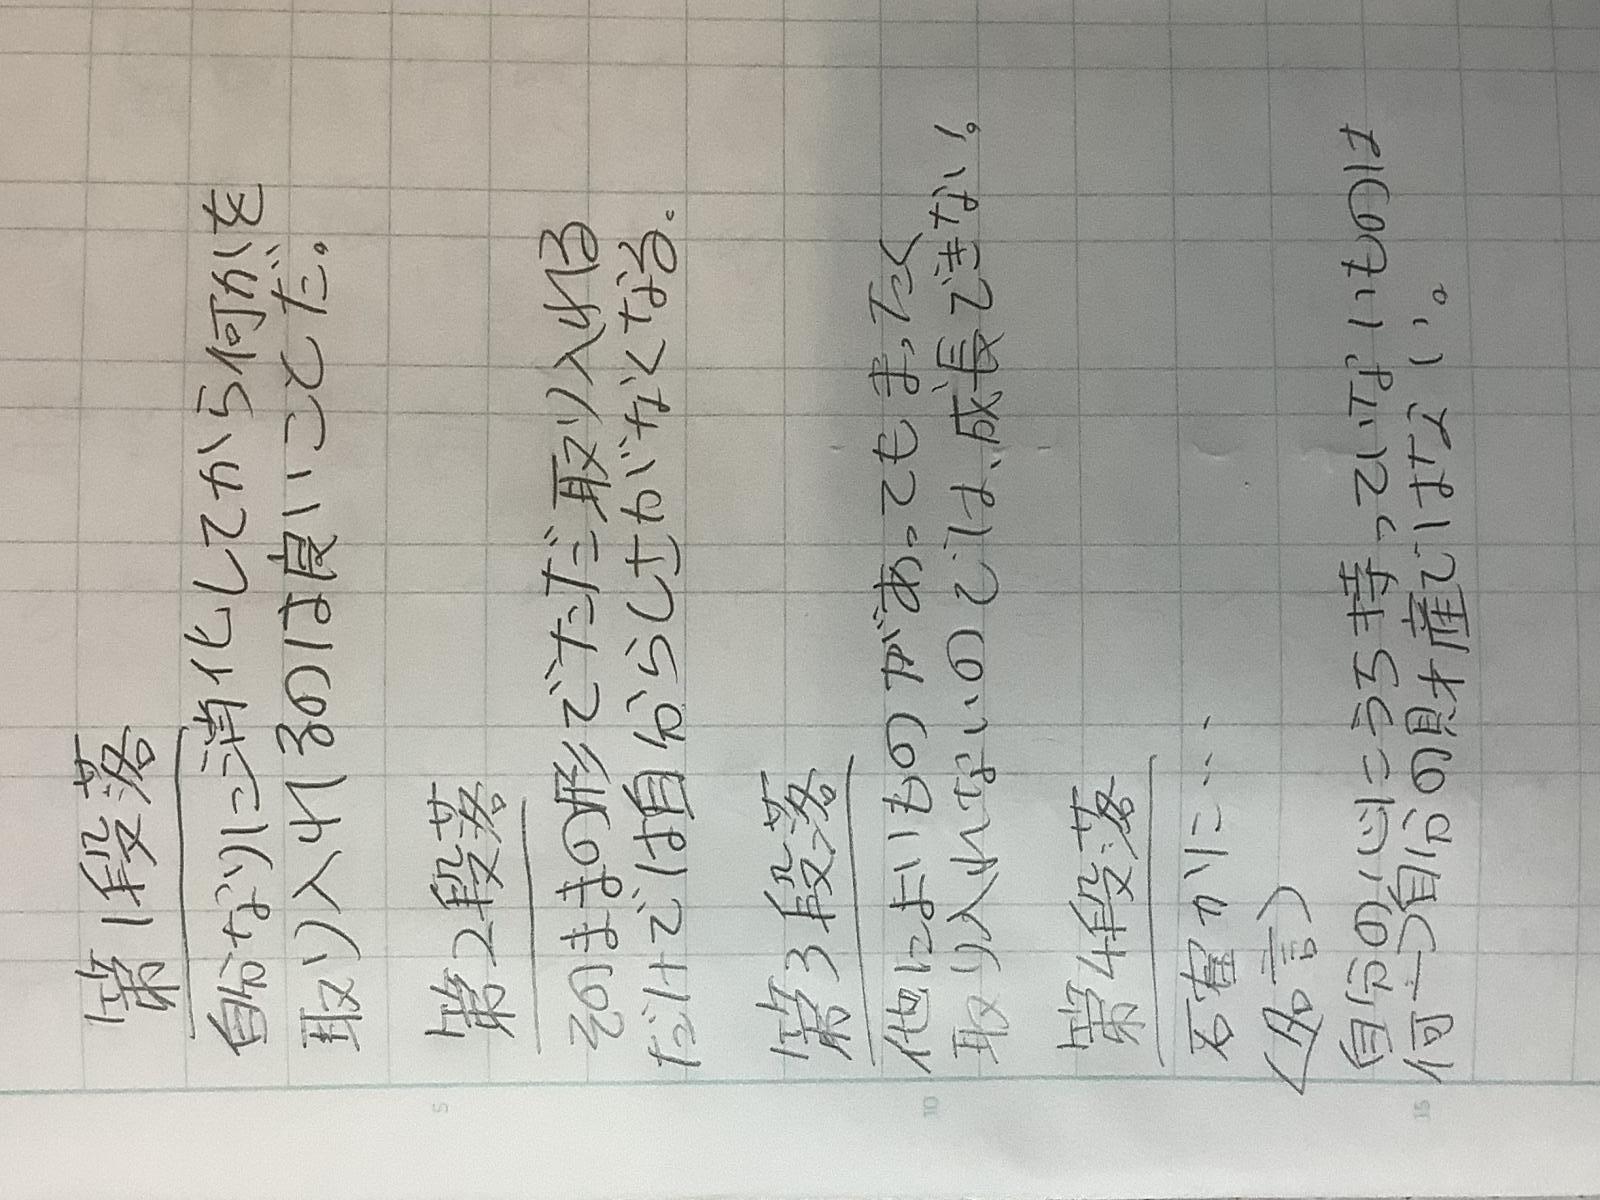 第1段落
自分なりに消化してから何かを
取り入れるのは良いことだ。
第2段落
そのままの形でただ取り入れる
だけでは自分らしさがなくなる。
第3段落
他によいものがあってもまったく
取り入れないのでは、成長できない。
第4段落
確かに…
〈名言〉
自分の心にうち持っていないものは
何一つ自分の財産ではない。
5
10
15